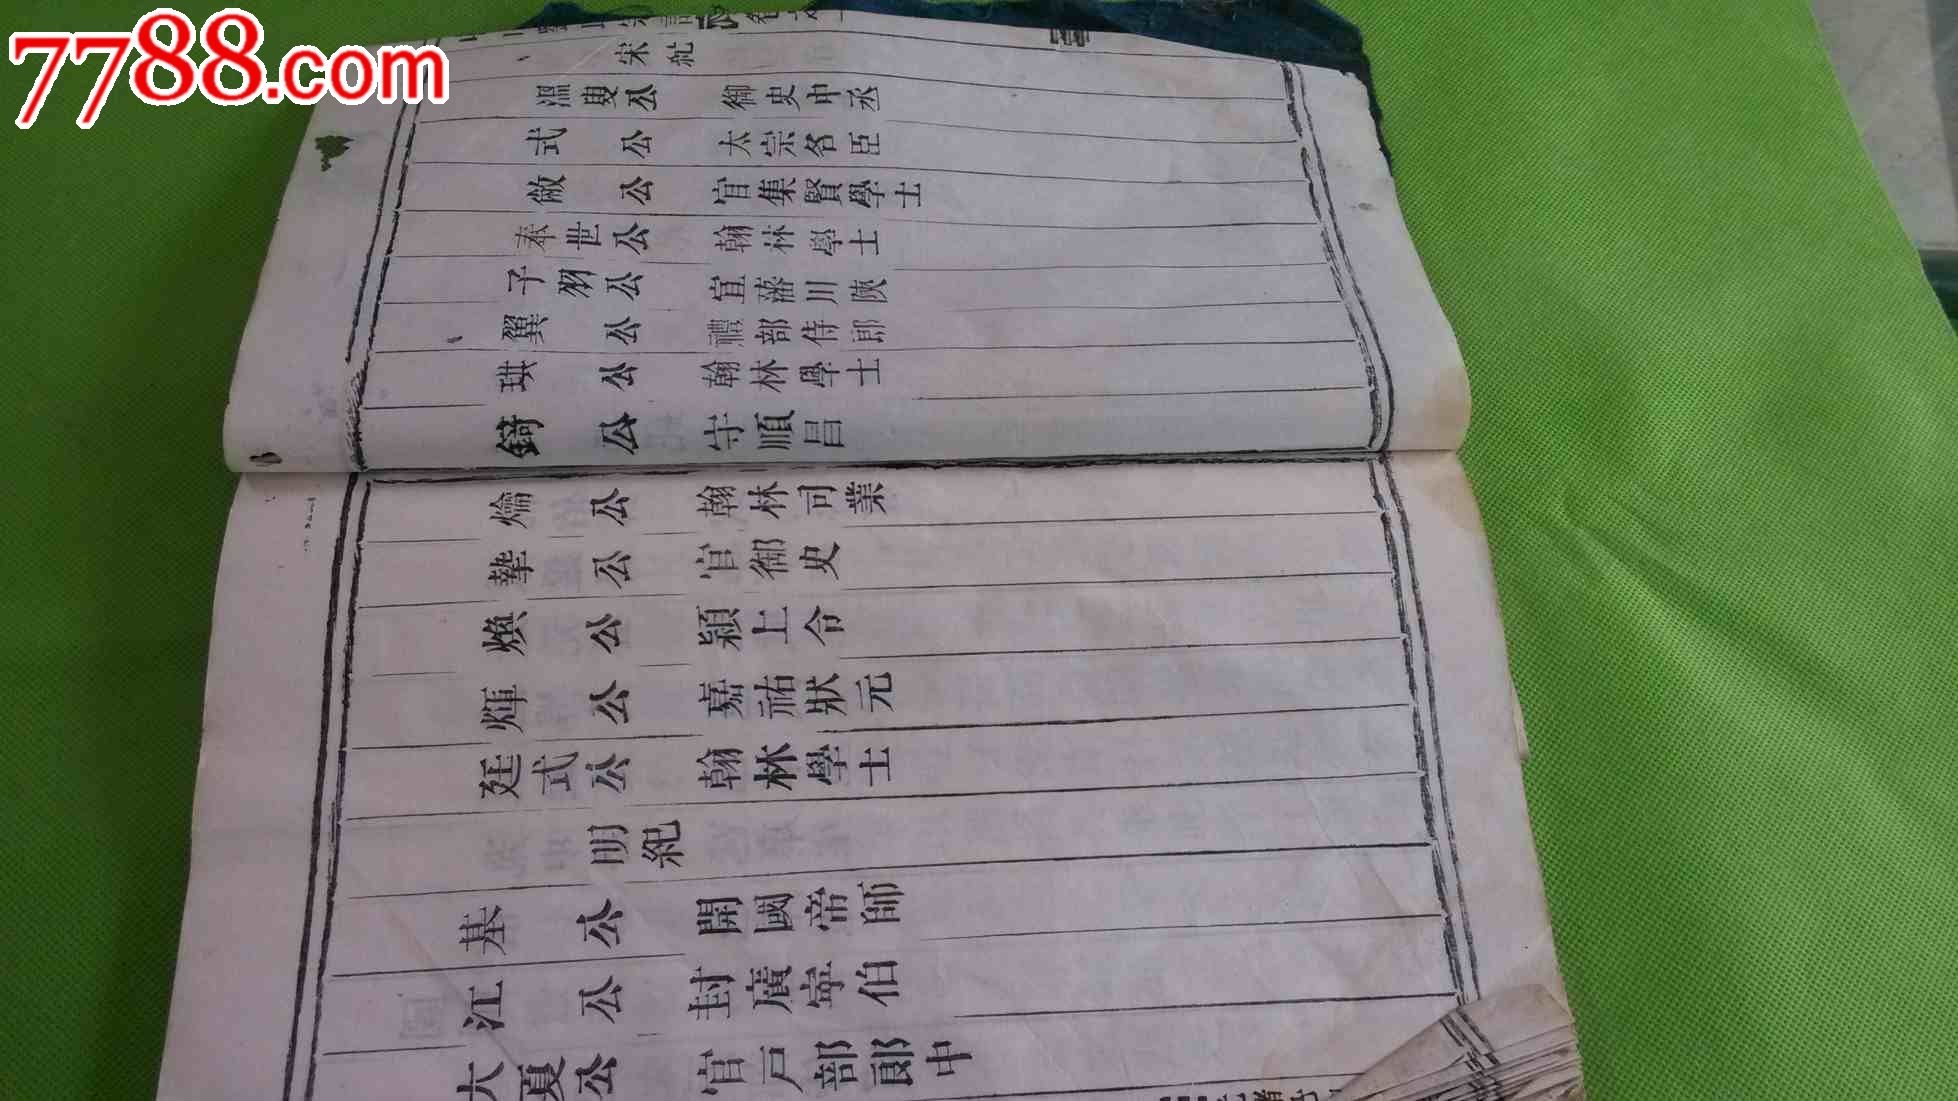 7788.com
宋紀
溫叟公 御史中丞
式公 太宗名臣
敝公 官集賢學士
奉世公 翰林學士
子羽公 宣藩川陝
翼公 禮部侍郎
珙公 翰林學士
錡公 守順昌
爚公 翰林司業
摯公 官御史
煥公 潁上令
煇公 嘉祐狀元
廷式公 翰林學士
明紀
基公 開國帝師
江公 封廣寧伯
大夏公 官戶部郎中